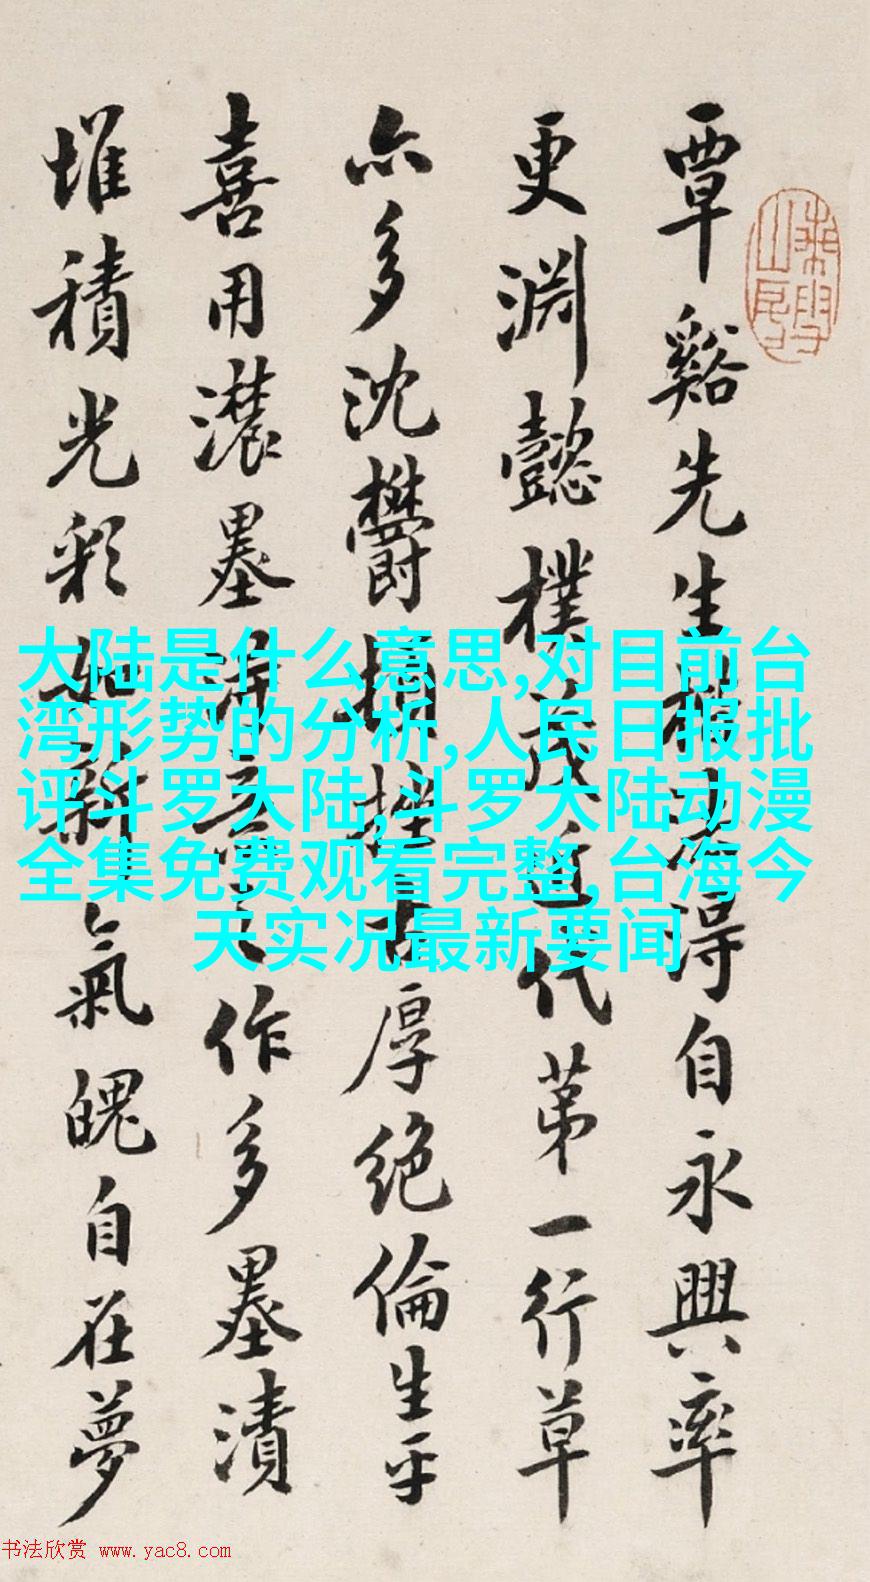 覃谿先生楷法得自永興率
更淵懿樸茂近代第一行草
亦多沈鬱頓挫古厚絶倫生平
喜用濃墨 作多墨漬
堆積光彩如新而氣魄自在夢
大陆是什么意思,对目前台
湾形势的分析,人民日报批
评斗罗大陆,斗罗大陆动漫
全集免费观看完整,台海今
天实况最新要闻
书法欣赏 www.yac8.com